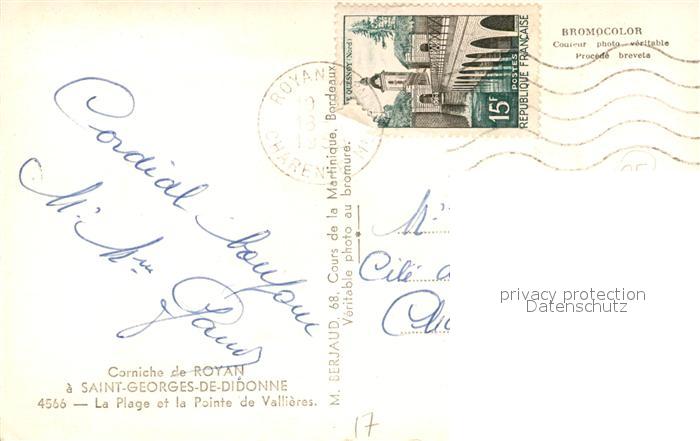 Cordial bonjour
Mr Mme
Corniche de ROYAN
à SAINT-GEORGES-DE-DIDONNE
4566 — La Plage et la Pointe de Vallières.
M. BERJAUD, 68, Cours de la Martinique, Bordeaux
Véritable photo au bromure.
ROYAN
CHARENTE
LE QUESNOY (Nord)
15F
POSTES
REPUBLIQUE FRANÇAISE
BROMOCOLOR
Couleur photo véritable
Procédé breveta
Mr
Cité
privacy protection
Datenschutz
17